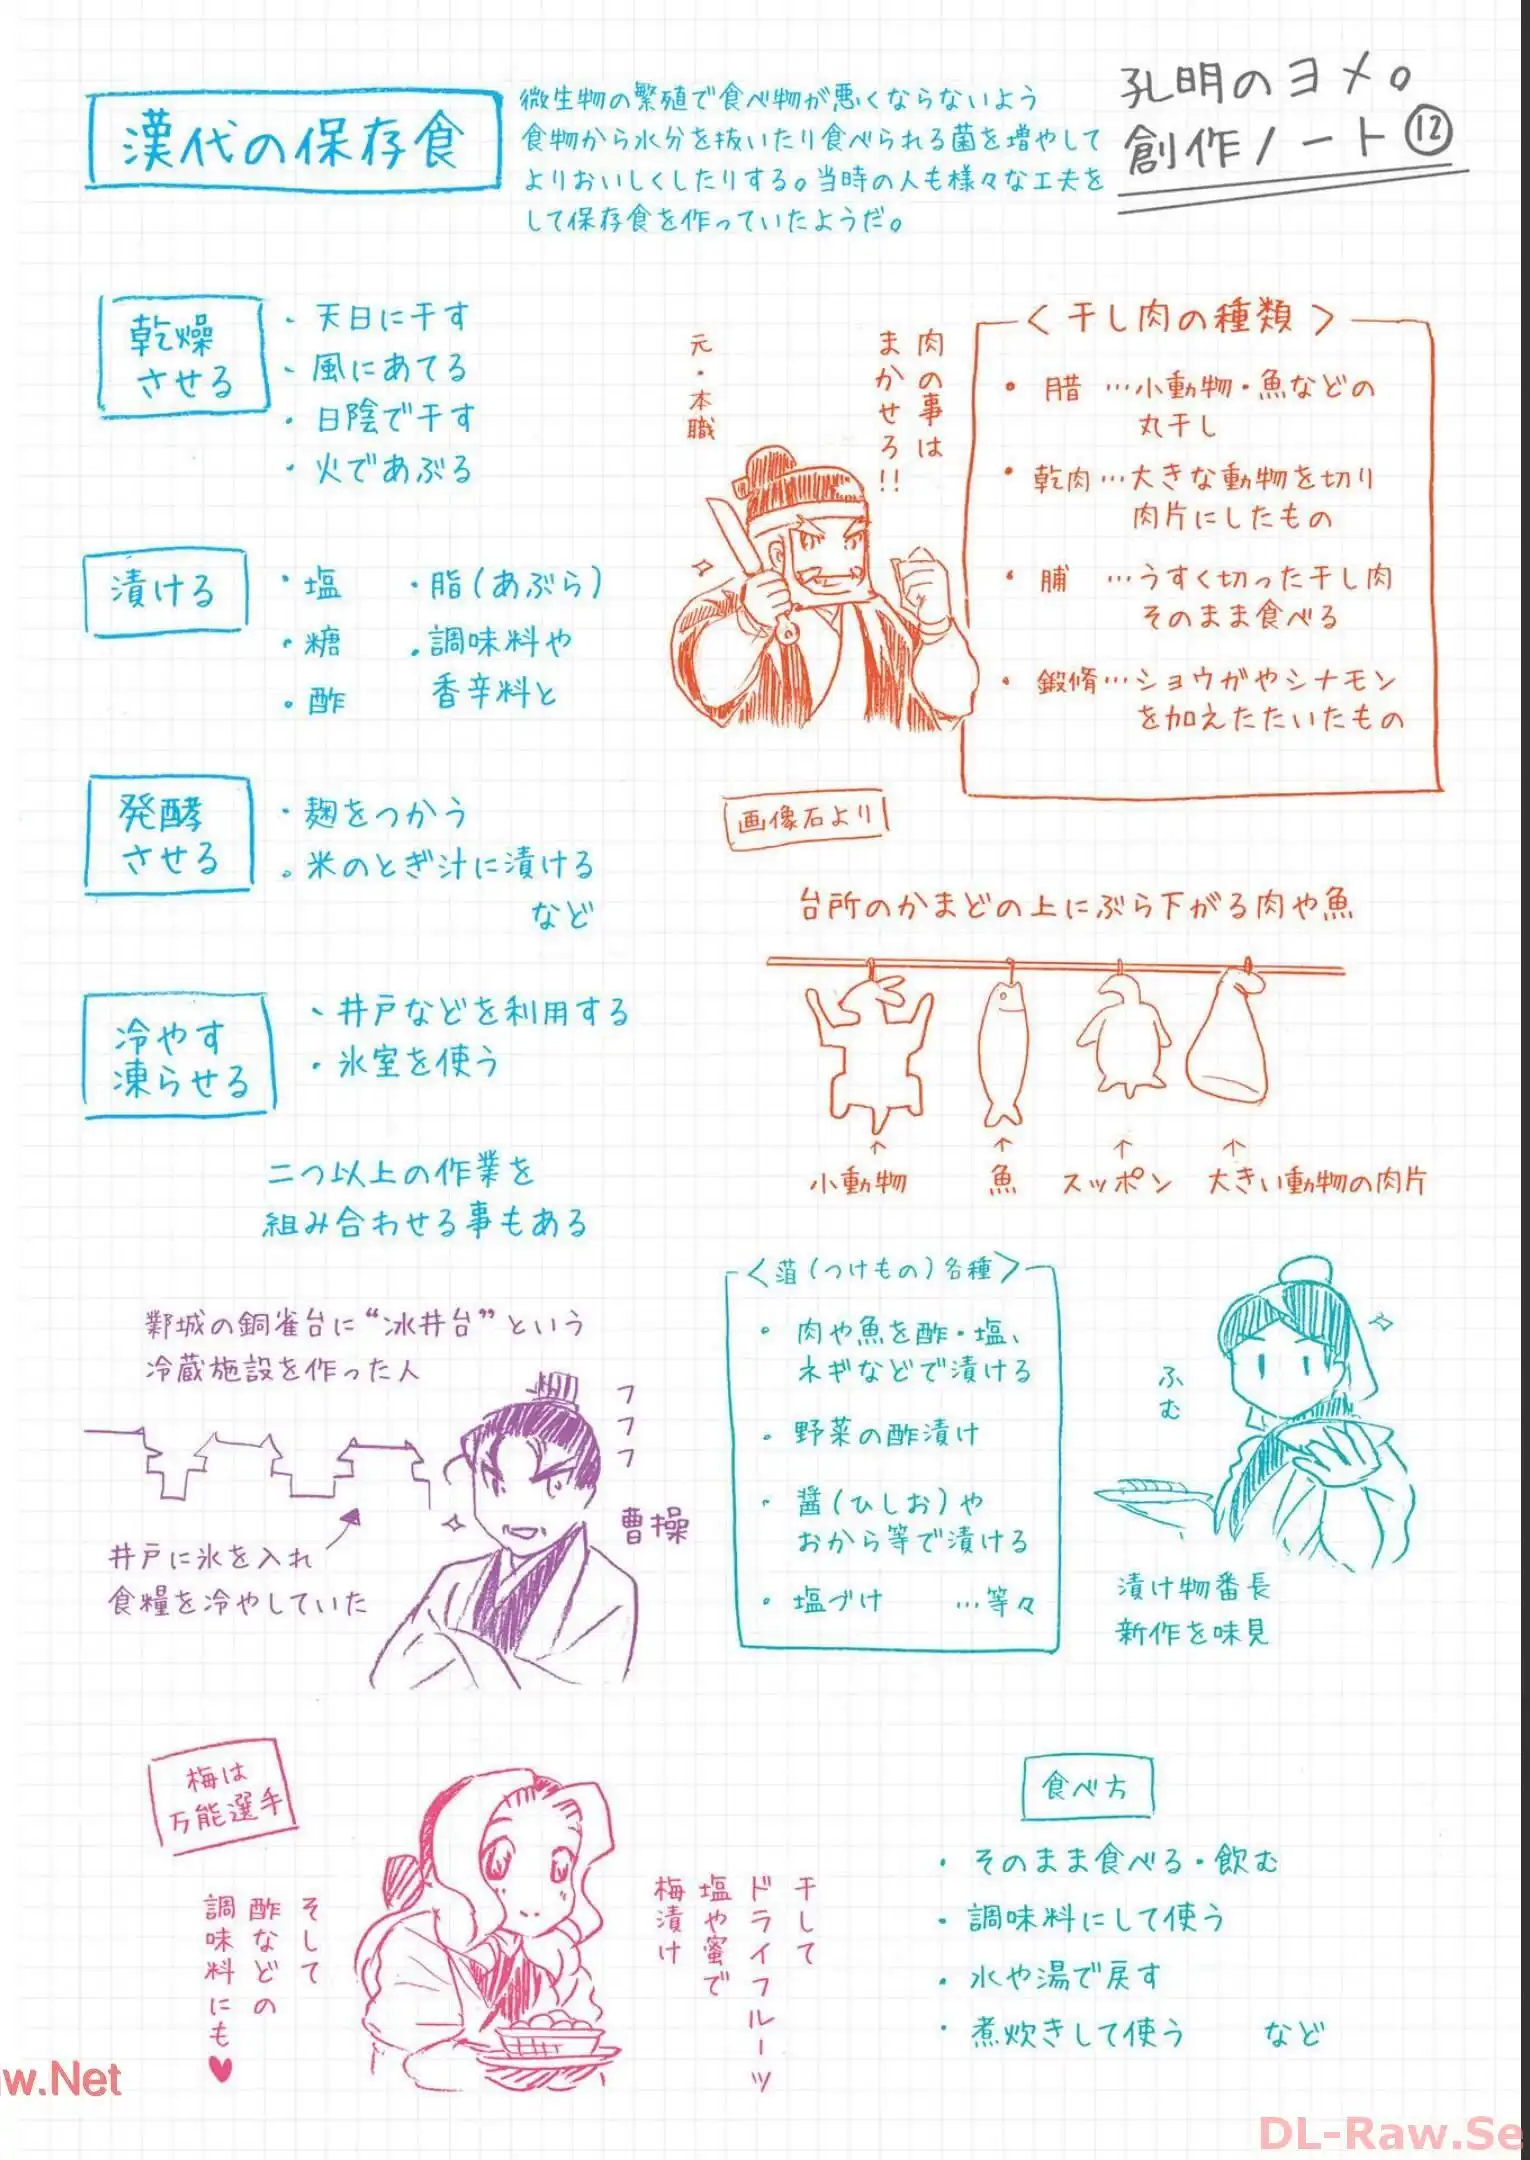 孔明のヨメ。
創作ノート⑫
漢代の保存食
微生物の繁殖で食べ物が悪くならないよう
食物から水分を抜いたり食べられる菌を増やして
よりおいしくしたりする。当時の人も様々な工夫を
して保存食を作っていたようだ。
乾燥
させる
・天日に干す
・風にあてる
・日陰で干す
・火であぶる
漬ける
・塩
・糖
・酢
・脂(あぶら)
・調味料や
香辛料と
発酵
させる
・麹をつかう
・米のとぎ汁に漬ける
など
冷やす
凍らせる
・井戸などを利用する
・氷室を使う
二つ以上の作業を
組み合わせる事もある
肉の事は
まかせろ!!
元・本職
<干し肉の種類>
・腊 …小動物・魚などの
丸干し
・乾肉…大きな動物を切り
肉片にしたもの
・脯 …うすく切った干し肉
そのまま食べる
・鍛脩…ショウガやシナモン
を加えたたいたもの
画像石より
台所のかまどの上にぶら下がる肉や魚
↑
小動物
↑
魚
↑
スッポン
↑
大きい動物の肉片
鄴城の銅雀台に“冰井台”という
冷蔵施設を作った人
フフフ
曹操
井戸に氷を入れ
食糧を冷やしていた
<菹(つけもの)各種>
・肉や魚を酢・塩、
ネギなどで漬ける
・野菜の酢漬け
・醤(ひしお)や
おから等で漬ける
・塩づけ …等々
ふむ
漬け物番長
新作を味見
梅は
万能選手
干して
ドライフルーツ
塩や蜜で
梅漬け
そして
酢などの
調味料にも♥
食べ方
・そのまま食べる・飲む
・調味料にして使う
・水や湯で戻す
・煮炊きして使う など
w.Net
DL-Raw.Se